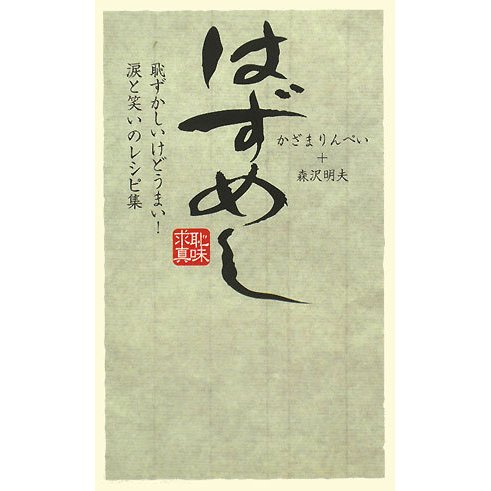 はずめし
恥ずかしいけどうまい！
涙と笑いのレシピ集
かざまりんぺい
＋
森沢明夫
恥味
求真